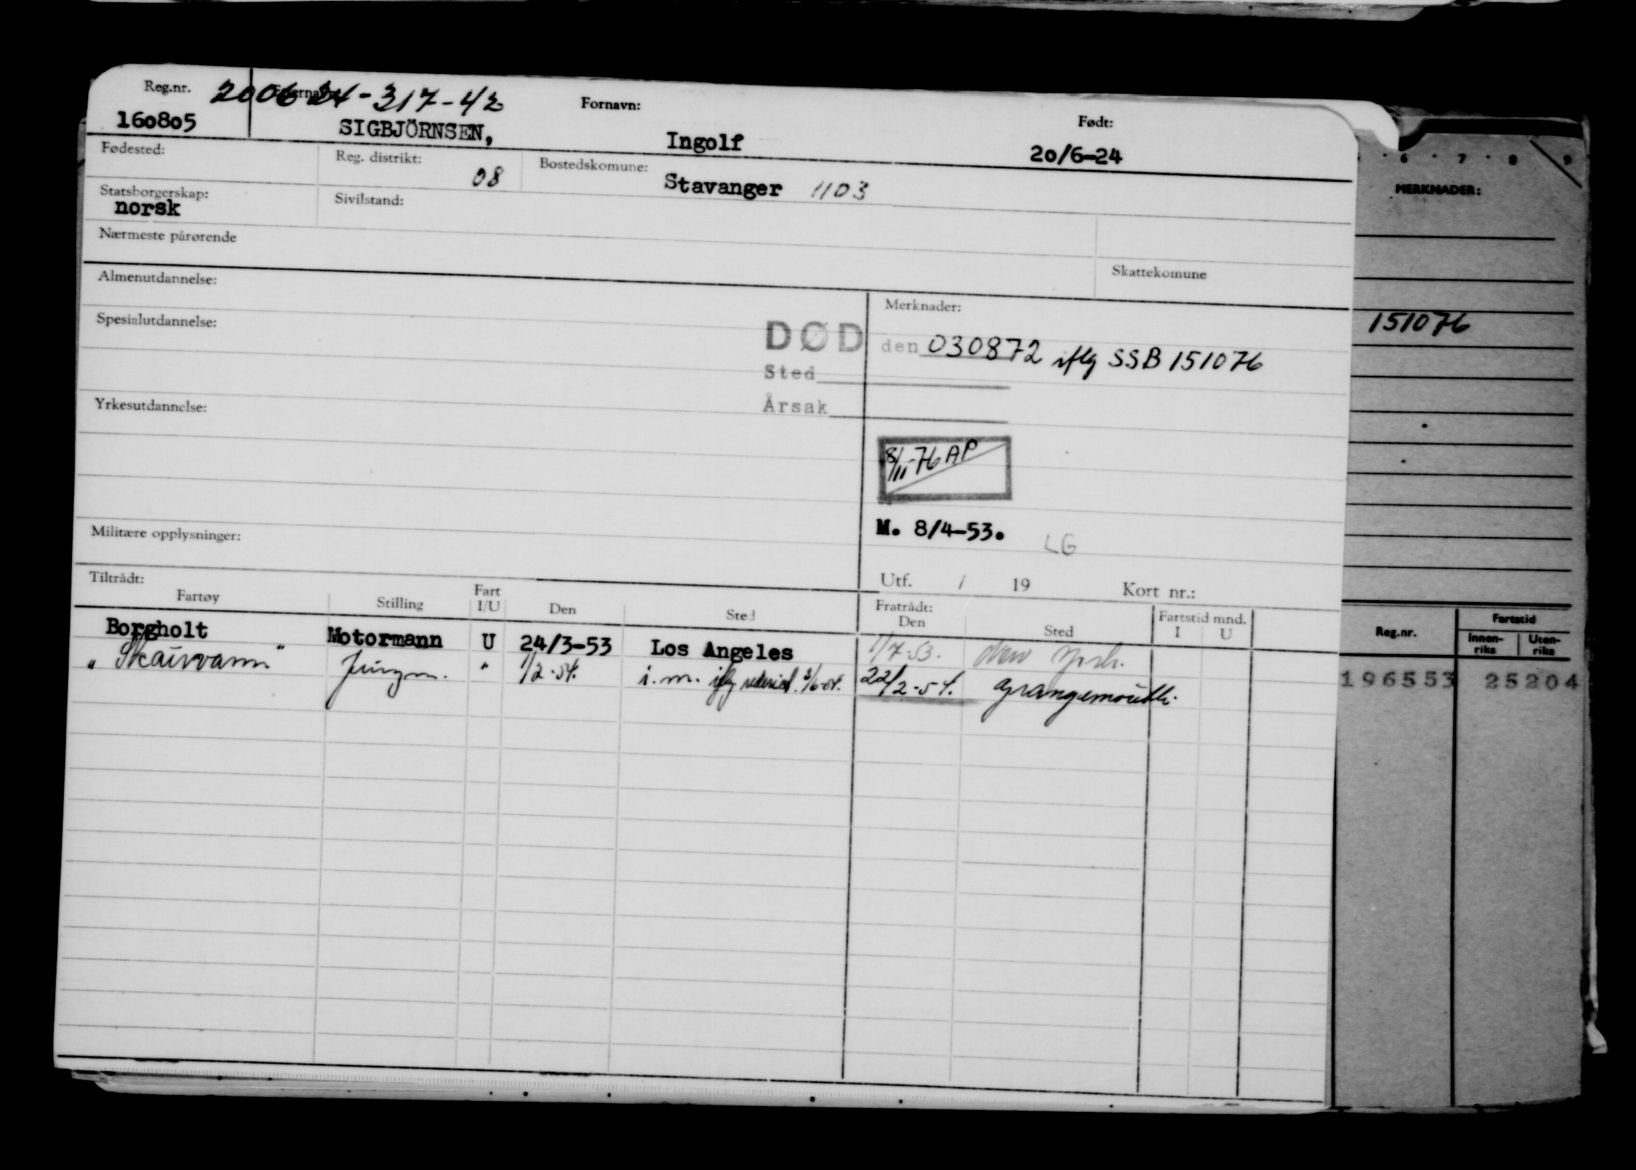 Reg.nr. 200624-317-42 Fornavn: Født:
160805 SIGBJÖRNSEN, Ingolf 20/6-24
Fødested: Reg. distrikt: 08 Bostedskomune: Stavanger 1103
Statsborgerskap: norsk Sivilstand:
Nærmeste pårørende
Skattekomune
Almenutdannelse: Merknader:
Spesialutdannelse: DØD den 030872 iflg SSB 151076
Sted
Årsak
Yrkesutdannelse:
8/11-76 AP
M. 8/4-53. LG
Militære opplysninger:
Utf. / 19 Kort nr.:
Tiltrådt: Fratrådt: Fartstid mnd.
Fartøy Stilling Fart I/U Den Sted Den Sted I U
Borgholt Motormann U 24/3-53 Los Angeles 1/7-53. New York.
" Skaurvann " Jungm. " 1/2-54. i.m. iflg 22/2-54. Grangemouth.
6 7 8 9
MERKNADER:
151076
Reg.nr. Fartstid
Innen-riks Uten-riks
196553 25204